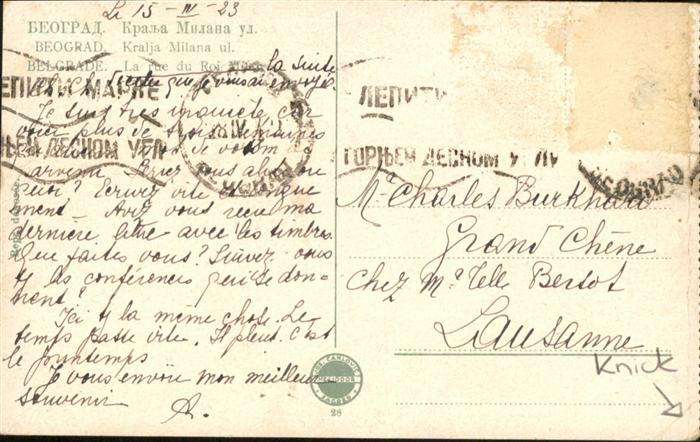 Le 15-IV-23
БЕОГРАД. Краља Милана ул.
BEOGRAD. Kralja Milana ul.
BELGRADE. La rue du Roi Milan
la suite
que je vous ai envoyé
Je suis très inquiète car
voici plus de trois semaines
de vous
Ecrivez vite
ment - Avez vous reçu ma
dernière lettre avec les timbres.
Que faites vous? Suivez-vous
les conférences qui se don-
nent?
Ici c'est la même chose. Le
temps passe vite. Il pleut. c'est
le printemps
Je vous envoie mon meilleur
souvenir
A.
ЛЕПИТЕ МАРКЕ
ГОРЊЕМ ДЕСНОМ УГЛУ
ЛЕПИТЕ
ГОРЊЕМ ДЕСНОМ УГЛУ
BEOGRAD
Mr Charles Burkhard
Grand Chêne
chez Mr Bersot
Lausanne
Knick
ZAGREB
28